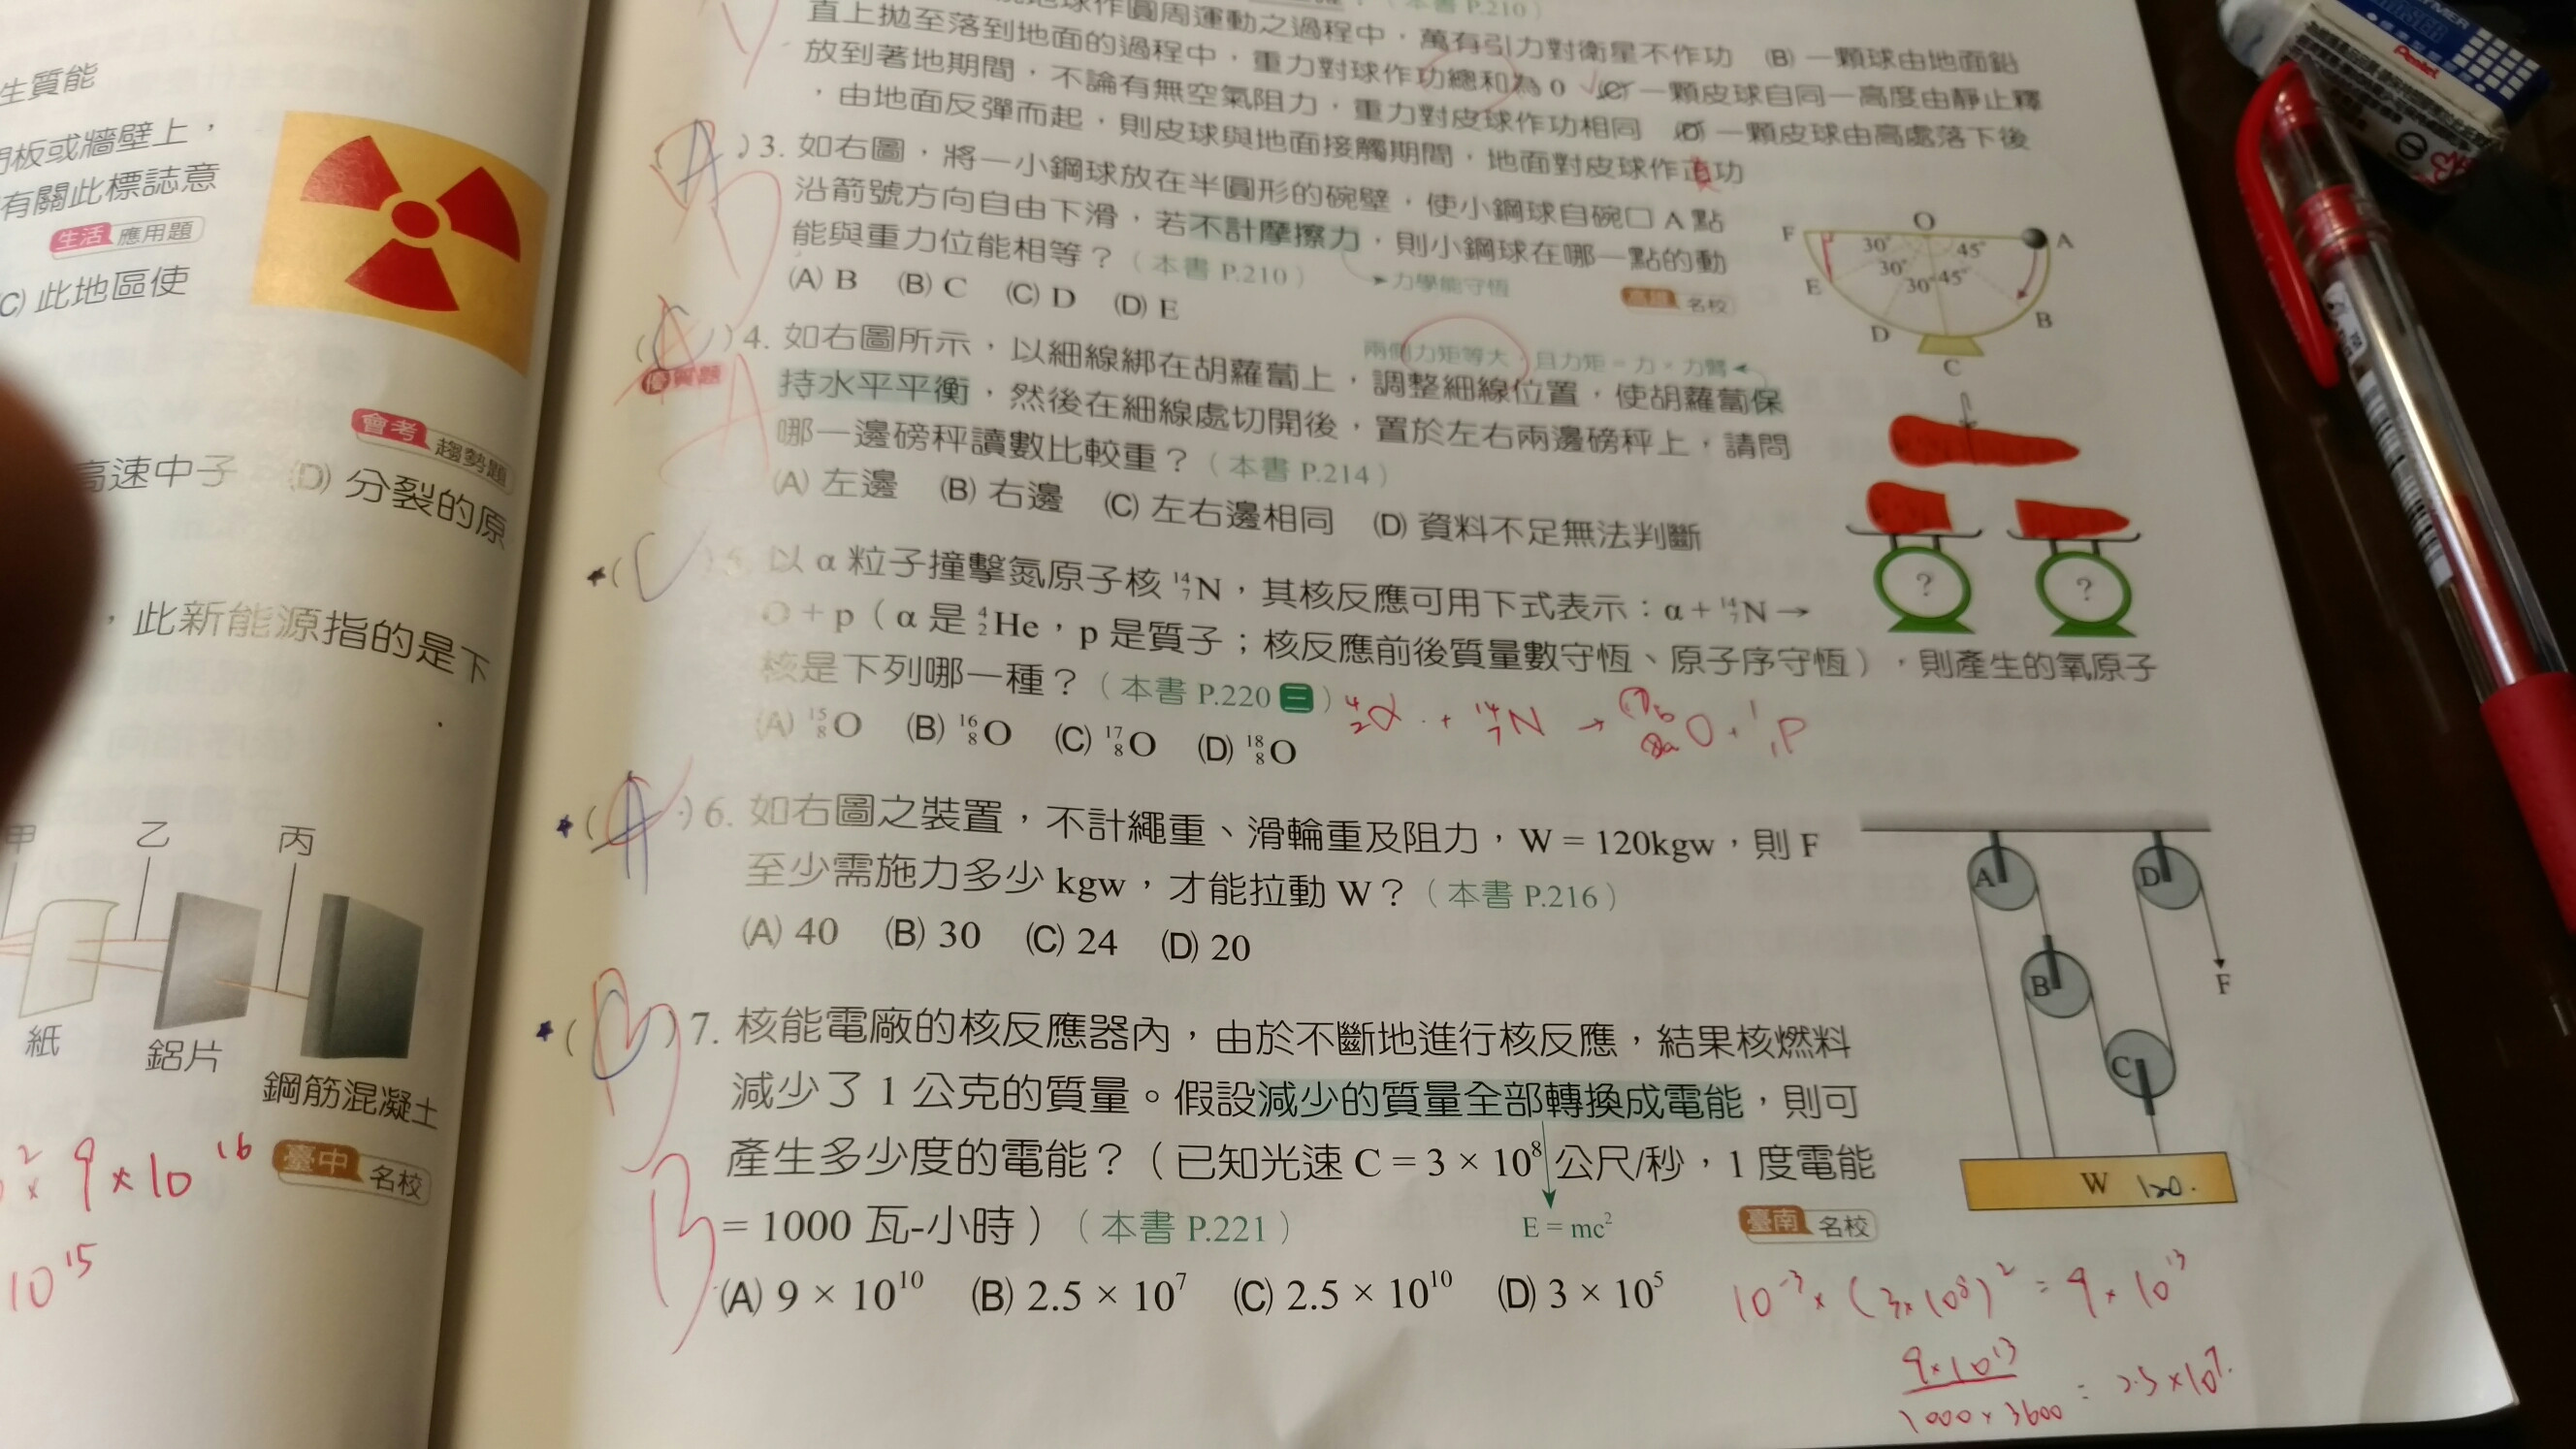 生質能
板或牆壁上，
有關此標誌意
生活 應用題
(C) 此地區使
會考 趨勢題
高速中子 (D) 分裂的原
，此新能源指的是下
甲 乙 丙
紙
鋁片
鋼筋混凝土
9×10^16
臺中 名校
10^15
球作圓周運動之過程中，萬有引力對衛星不作功 (B) 一顆球由地面鉛
直上拋至落到地面的過程中，重力對球作功總和為 0 (C) 一顆皮球自同一高度由靜止釋
放到著地期間，不論有無空氣阻力，重力對皮球作功相同 (D) 一顆皮球由高處落下後
，由地面反彈而起，則皮球與地面接觸期間，地面對皮球作功
(A)3. 如右圖，將一小鋼球放在半圓形的碗壁，使小鋼球自碗口 A 點
沿箭號方向自由下滑，若不計摩擦力，則小鋼球在哪一點的動
能與重力位能相等？（本書 P.210）
力學能守恆
(A) B (B) C (C) D (D) E
高雄 名校
F O A
30° 45°
30°
30° 45°
E B
D
C
兩側力矩等大，且力矩＝力×力臂
4. 如右圖所示，以細線綁在胡蘿蔔上，調整細線位置，使胡蘿蔔保
持水平平衡，然後在細線處切開後，置於左右兩邊磅秤上，請問
哪一邊磅秤讀數比較重？（本書 P.214）
(A) 左邊 (B) 右邊 (C) 左右邊相同 (D) 資料不足無法判斷
優質題
A
? ?
★(C)5. 以 α 粒子撞擊氮原子核 ¹⁴₇N，其核反應可用下式表示：α + ¹⁴₇N →
O + p（α 是 ⁴₂He，p 是質子；核反應前後質量數守恆、原子序守恆），則產生的氧原子
核是下列哪一種？（本書 P.220 三）
(A) ¹⁵₈O (B) ¹⁶₈O (C) ¹⁷₈O (D) ¹⁸₈O
⁴₂α + ¹⁴₇N → O + ¹₁P
★(A)6. 如右圖之裝置，不計繩重、滑輪重及阻力，W = 120kgw，則 F
至少需施力多少 kgw，才能拉動 W？（本書 P.216）
(A) 40 (B) 30 (C) 24 (D) 20
A D
B F
C
W 120.
★(B)7. 核能電廠的核反應器內，由於不斷地進行核反應，結果核燃料
減少了 1 公克的質量。假設減少的質量全部轉換成電能，則可
產生多少度的電能？（已知光速 C = 3 × 10⁸ 公尺/秒，1 度電能
= 1000 瓦-小時）（本書 P.221）
E = mc²
臺南 名校
B
(A) 9 × 10¹⁰ (B) 2.5 × 10⁷ (C) 2.5 × 10¹⁰ (D) 3 × 10⁵
10⁻³ × (3×10⁸)² = 9 × 10¹³
9×10¹³
1000×3600
= 2.5×10⁷.
Pentel